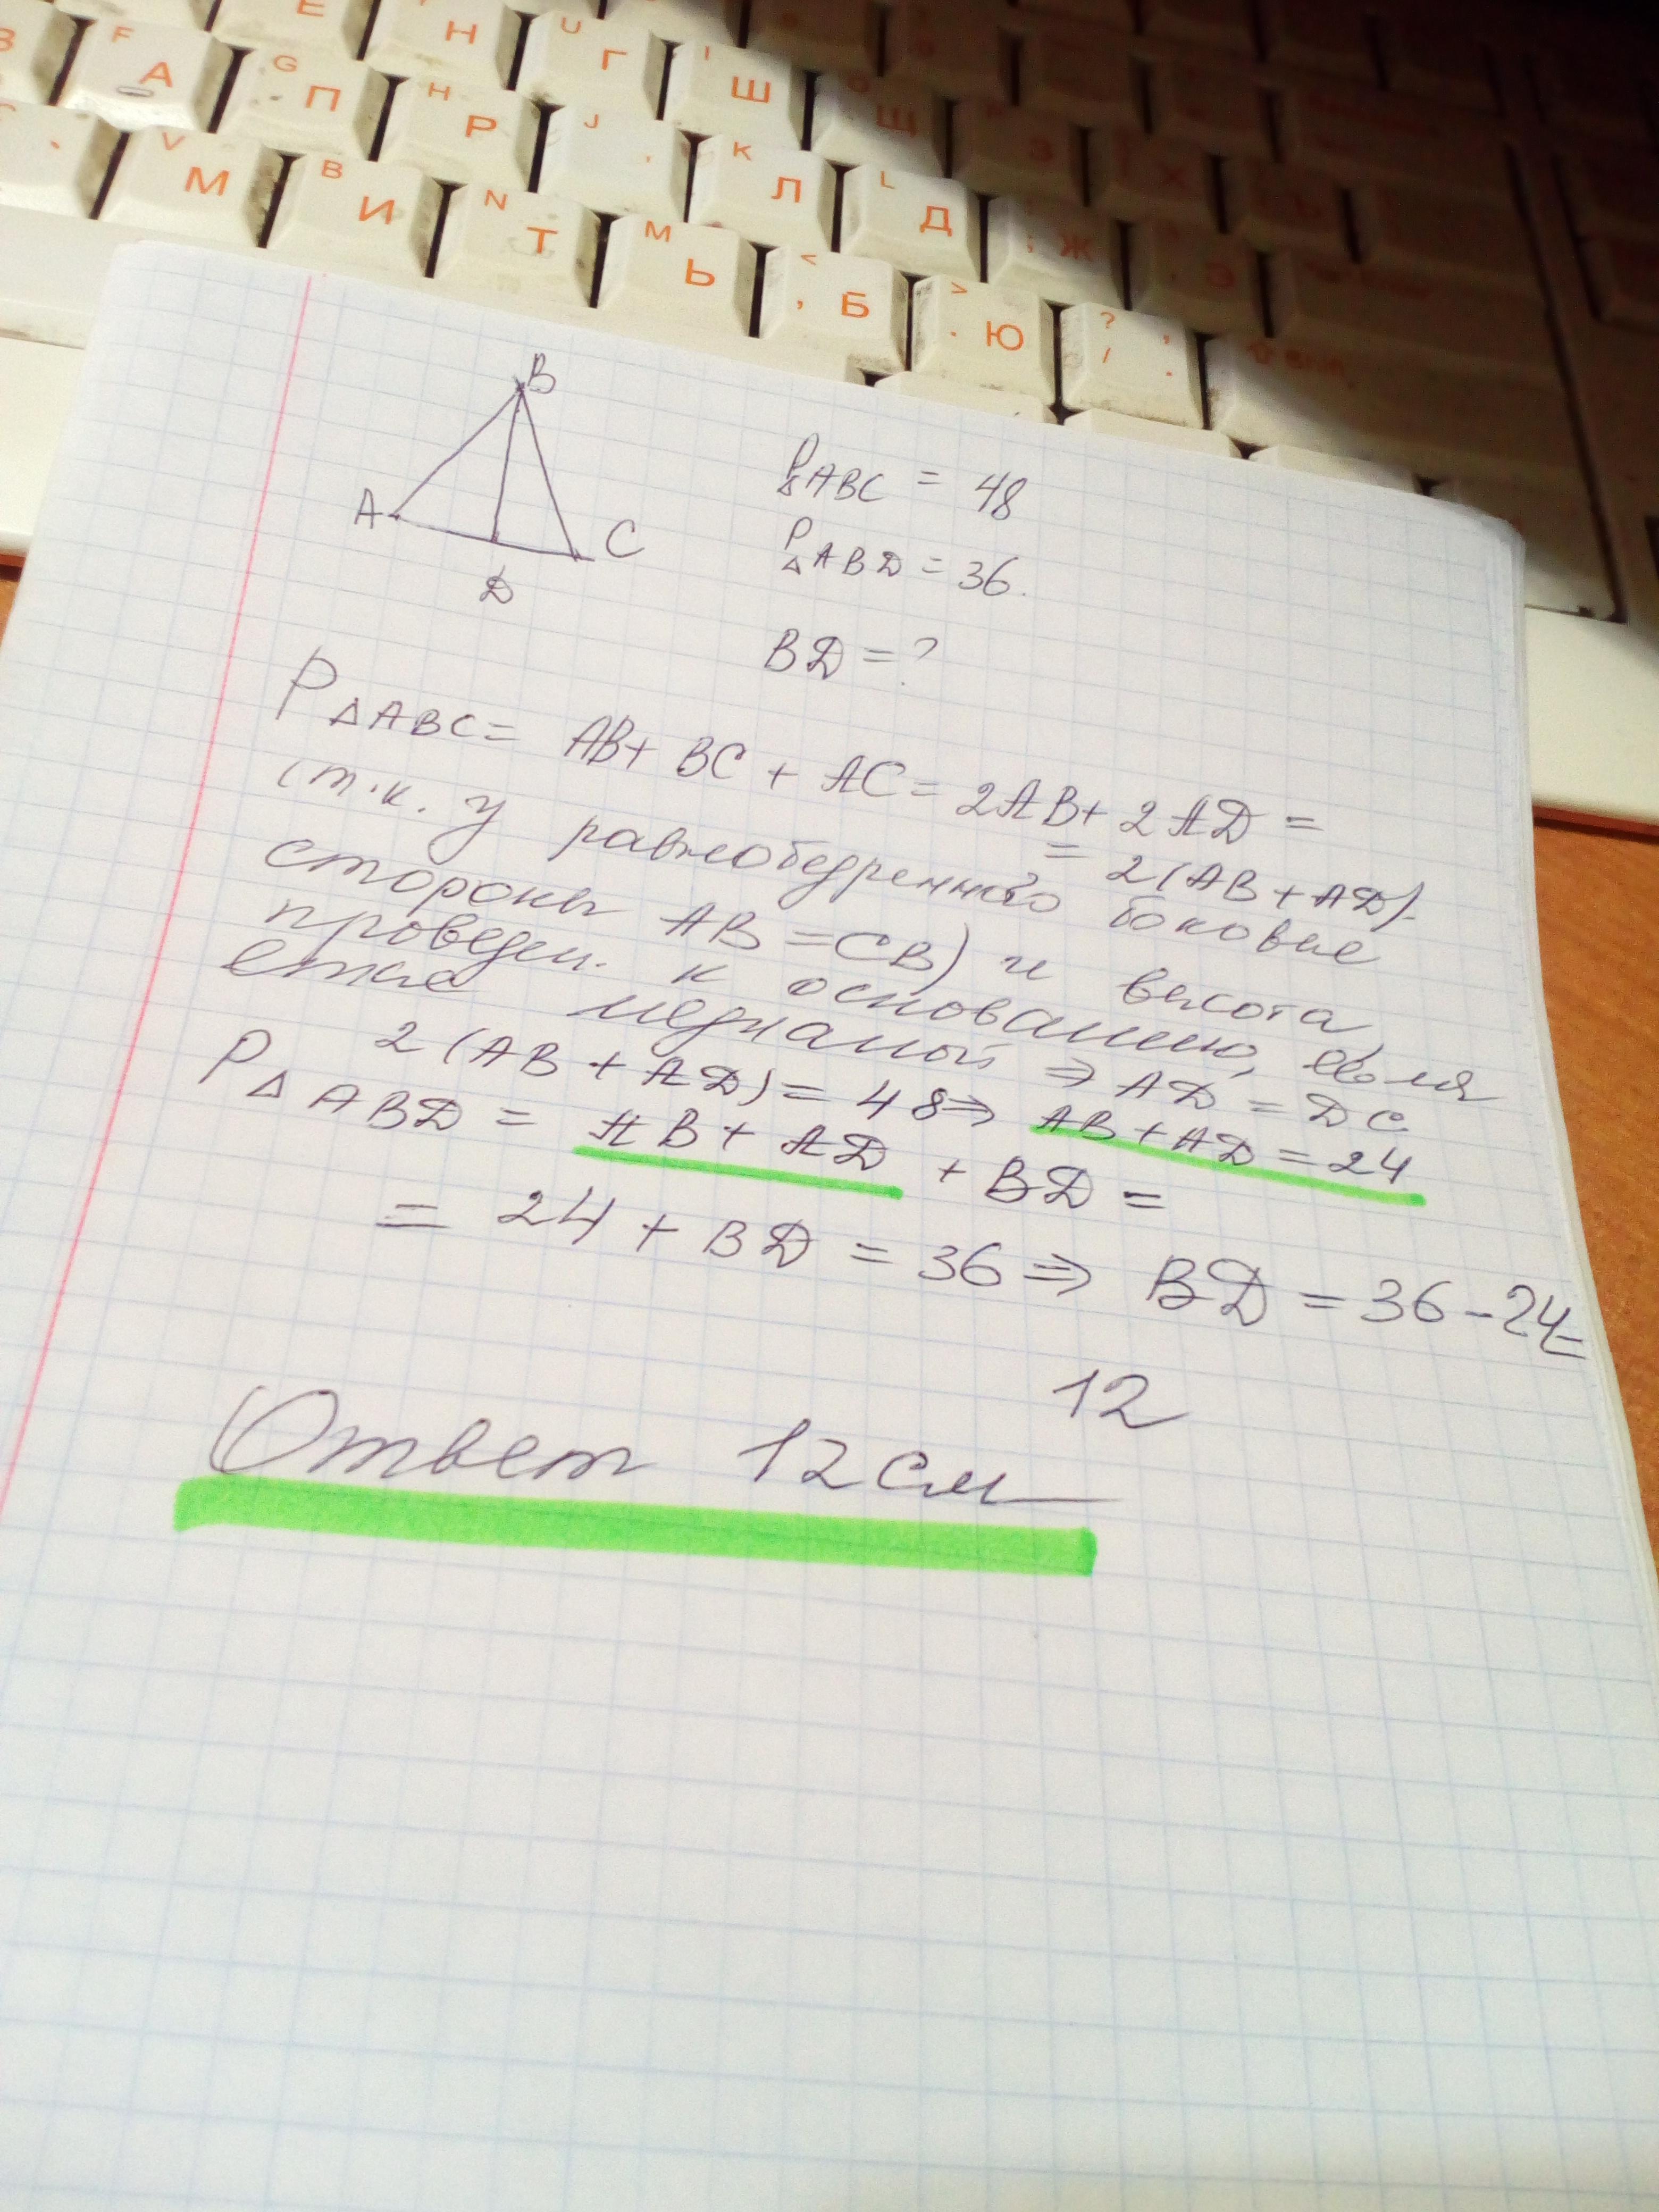 E Н U Г I Ш
F А G П H Р J К Л L Д ; Ж Э
V М B И N Т M Ь < , Б > . Ю ? / , .
B
A C
D
P△ABC = 48
P△ABD = 36.
BD = ?
P△ABC = AB + BC + AC = 2AB + 2AD =
= 2(AB + AD).
(т.к. у равнобедренного боковые
стороны AB = CB) и высота,
проведен. к основанию, явля
ется медианой, ⇒ AD = DC
2(AB + AD) = 48 ⇒ AB + AD = 24
P△ABD = AB + AD + BD =
= 24 + BD = 36 ⇒ BD = 36 - 24 =
12
Ответ 12 см